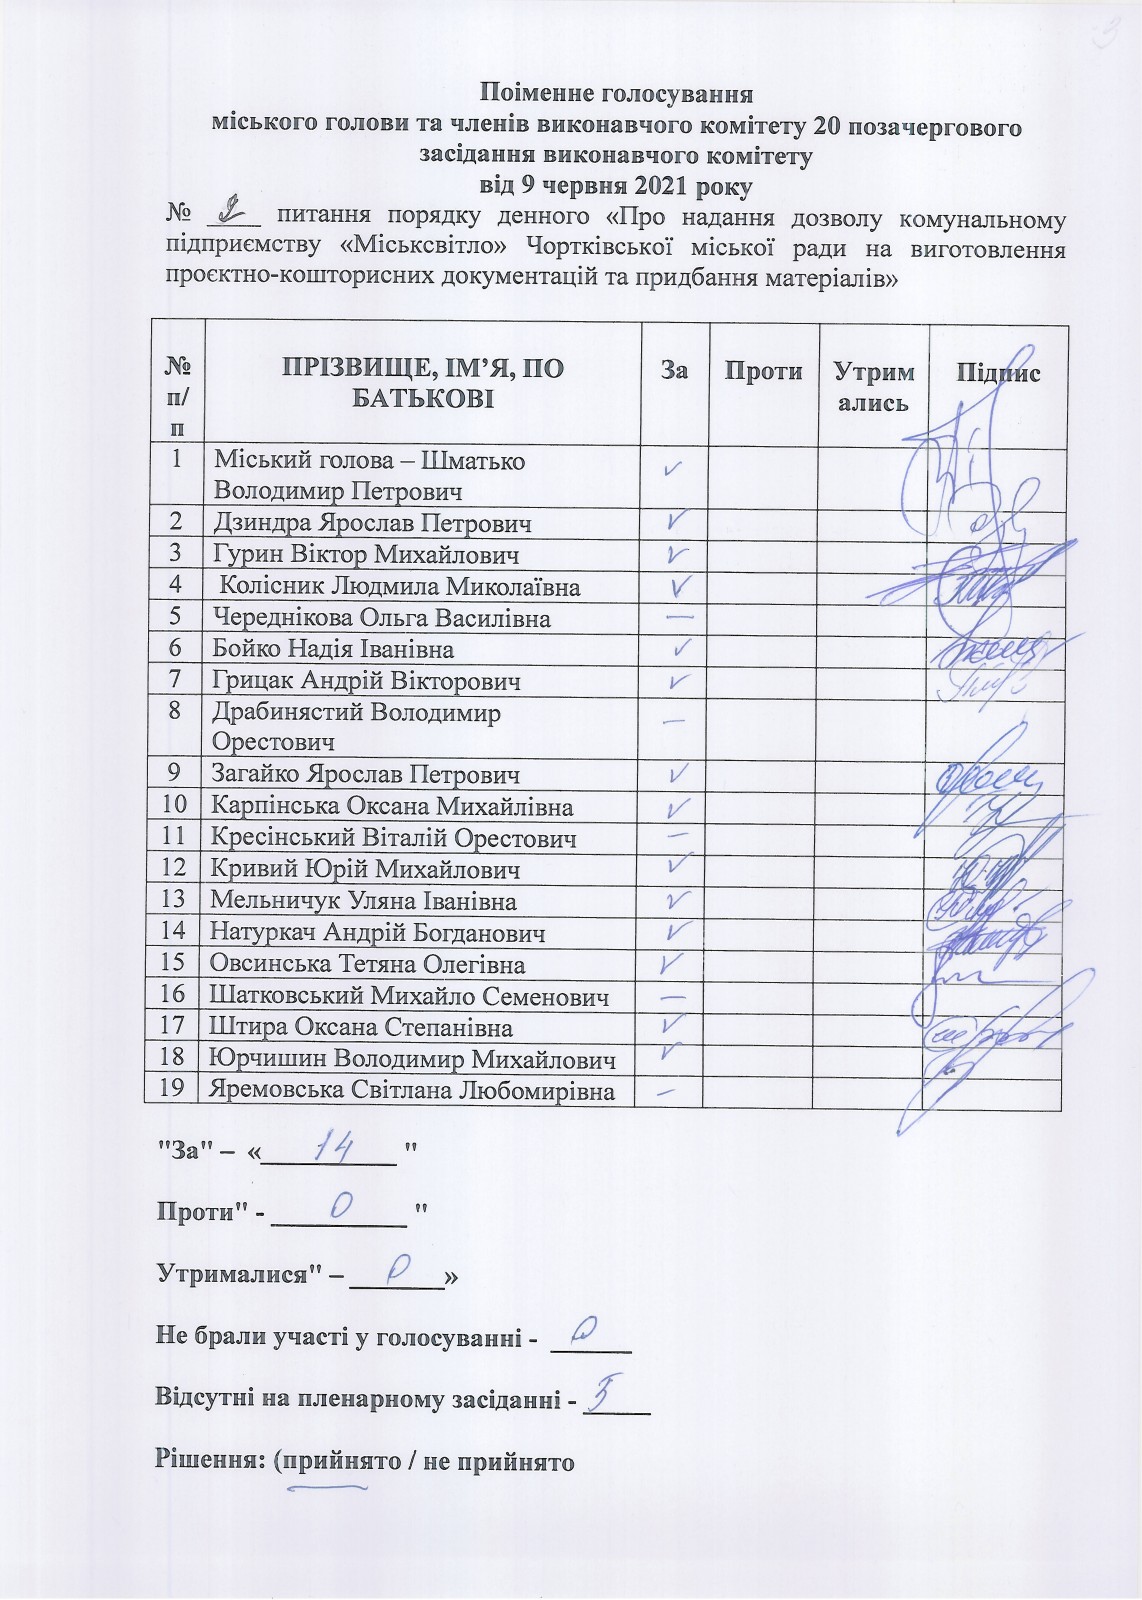 Поіменне голосування
міського голови та членів виконавчого комітету 20 позачергового
засідання виконавчого комітету
від 9 червня 2021 року
№ 2 питання порядку денного «Про надання дозволу комунальному
підприємству «Міськсвітло» Чортківської міської ради на виготовлення
проєктно-кошторисних документацій та придбання матеріалів»
№ п/п ПРІЗВИЩЕ, ІМ’Я, ПО БАТЬКОВІ За Проти Утримались Підпис
1 Міський голова – Шматько
Володимир Петрович
2 Дзиндра Ярослав Петрович
3 Гурин Віктор Михайлович
4 Колісник Людмила Миколаївна
5 Череднікова Ольга Василівна —
6 Бойко Надія Іванівна
7 Грицак Андрій Вікторович
8 Драбинястий Володимир —
Орестович
9 Загайко Ярослав Петрович
10 Карпінська Оксана Михайлівна
11 Кресінський Віталій Орестович —
12 Кривий Юрій Михайлович
13 Мельничук Уляна Іванівна
14 Натуркач Андрій Богданович
15 Овсинська Тетяна Олегівна
16 Шатковський Михайло Семенович —
17 Штира Оксана Степанівна
18 Юрчишин Володимир Михайлович
19 Яремовська Світлана Любомирівна —
"За" – « 14 "
Проти" - 0 "
Утрималися" – 0 »
Не брали участі у голосуванні - 0
Відсутні на пленарному засіданні - 5
Рішення: (прийнято / не прийнято